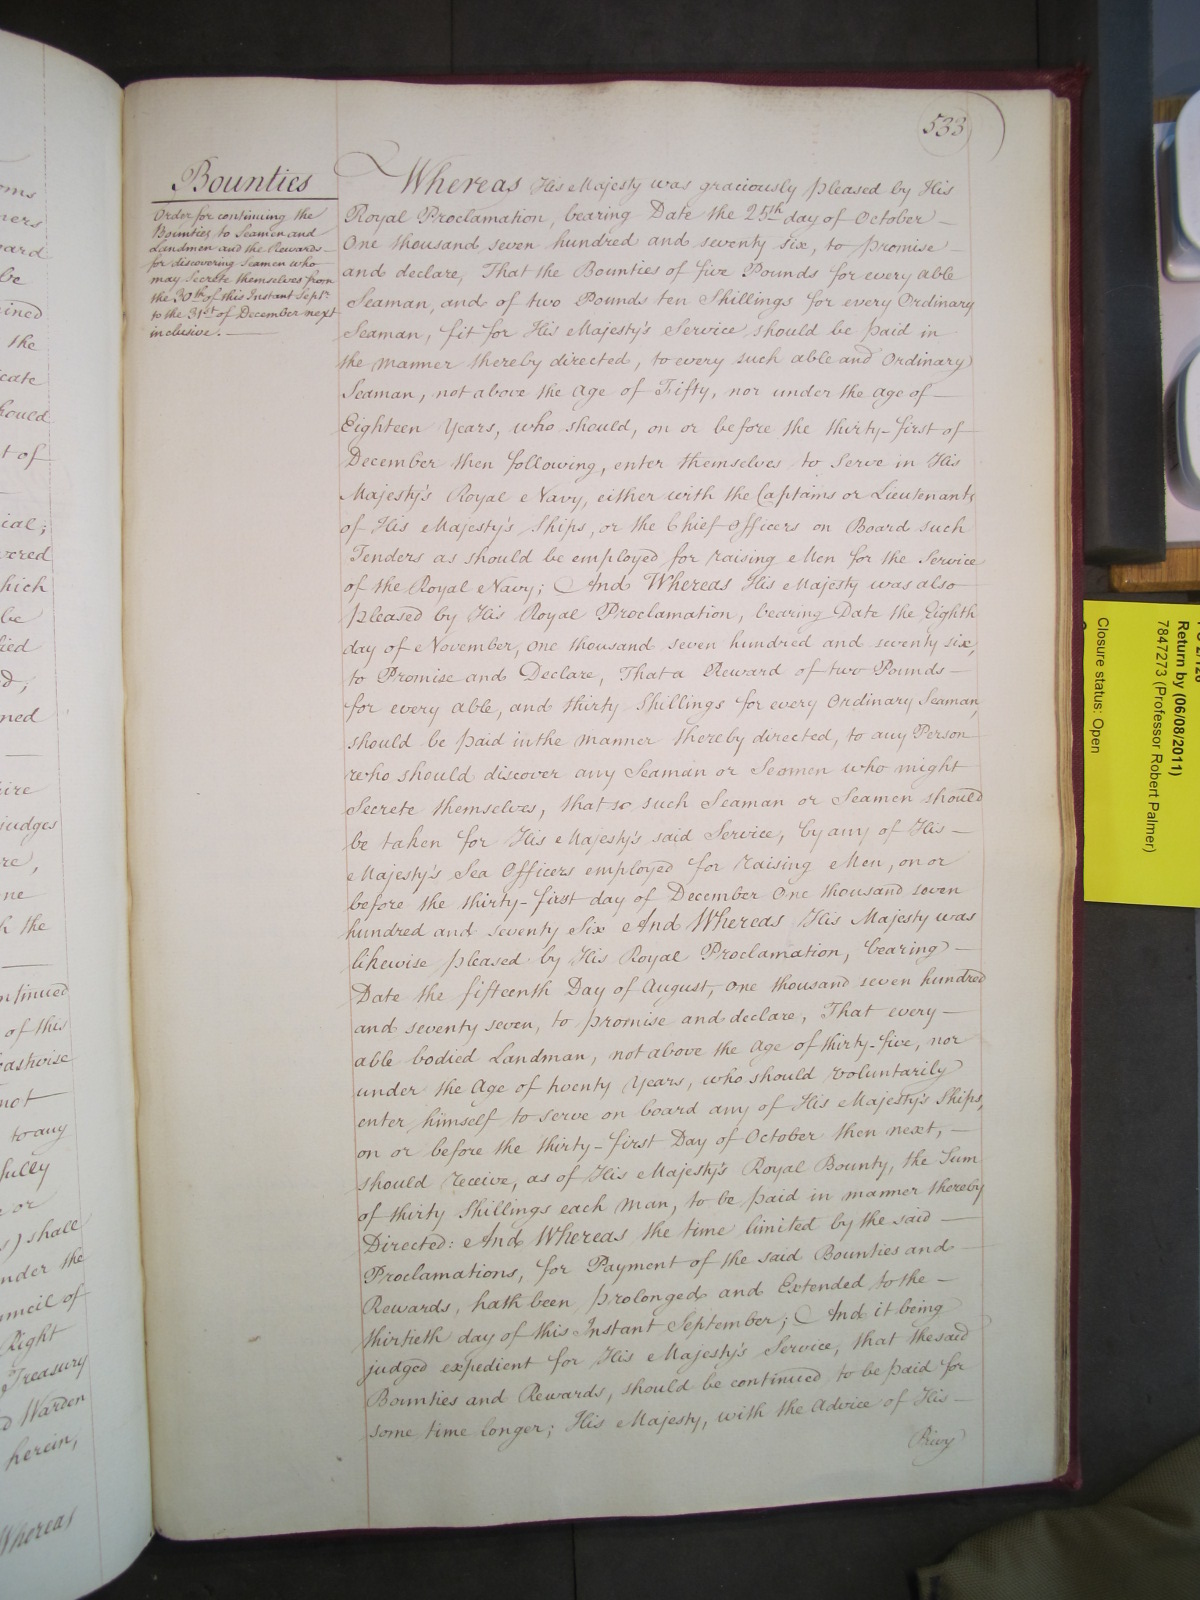 533
Bounties
Order for continuing the
Bounties to Seamen and
Landmen and the Rewards
for discovering Seamen who
may Secrete themselves from
the 30th of this Instant Septr.
to the 31st of December next
inclusive.
Whereas His Majesty was graciously pleased by His
Royal Proclamation, bearing Date the 25th day of October
One thousand seven hundred and seventy six, to promise
and declare, That the Bounties of five Pounds for every able
Seaman, and of two Pounds ten Shillings for every Ordinary
Seaman, fit for His Majesty's Service should be paid in
the manner thereby directed, to every such able and Ordinary
Seaman, not above the Age of Fifty, nor under the Age of
Eighteen Years, who should, on or before the thirty-first of
December then following, enter themselves to Serve in His
Majesty's Royal Navy, either with the Captains or Lieutenants
of His Majesty's Ships, or the Chief Officers on Board such
Tenders as should be employed for raising Men for the Service
of the Royal Navy; And Whereas His Majesty was also
pleased by His Royal Proclamation, bearing Date the Eighth
day of November, one thousand seven hundred and seventy six,
to Promise and Declare, That a Reward of two Pounds
for every able, and thirty Shillings for every Ordinary Seaman,
should be paid in the manner thereby directed, to any Person
who should discover any Seaman or Seamen who might
Secrete themselves, that so such Seaman or Seamen should
be taken for His Majesty's said Service, by any of His
Majesty's Sea Officers employed for raising Men, on or
before the thirty-first day of December One thousand seven
hundred and seventy Six And Whereas His Majesty was
likewise pleased by His Royal Proclamation, bearing
Date the fifteenth Day of August, one thousand seven hundred
and seventy seven, to promise and declare, That every
able bodied Landman, not above the Age of thirty-five, nor
under the Age of twenty Years, who should voluntarily
enter himself to serve on board any of His Majesty's Ships,
on or before the thirty-first Day of October then next,
should receive, as of His Majesty's Royal Bounty, the Sum
of thirty Shillings each Man, to be paid in manner thereby
Directed: And Whereas the time limited by the said
Proclamations, for Payment of the said Bounties and
Rewards, hath been prolonged and Extended to the
thirtieth day of this Instant September; And it being
judged expedient for His Majesty's Service, that the said
Bounties and Rewards, should be continued to be paid for
some time longer; His Majesty, with the Advice of His
Privy
be
the
should
t of
hich
be
ned
judges
ne
the
of this
not
to any
fully
or
) shall
under the
Right
Treasury
Warden
herein,
Whereas
Return by (06/08/2011)
7847273 (Professor Robert Palmer)
Closure status: Open